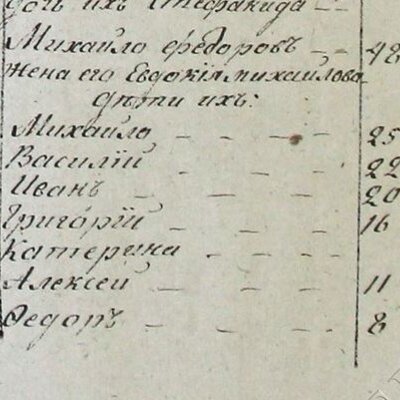 дочь ихъ Стефанида
Михайло Ѳедоровъ 48
Жена его Евдокія михайлова
дѣти ихъ:
Михайло 25
Василій 22
Иванъ 20
Григорій 16
Катерина
Алексей 11
Ѳедоръ 8